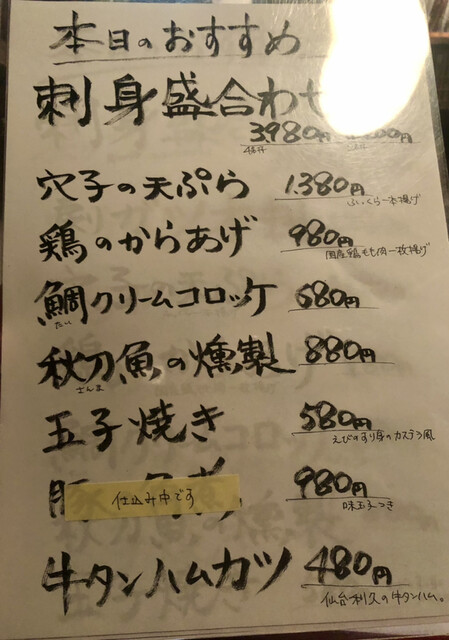 本日のおすすめ
刺身盛合わせ
3.980円
穴子の天ぷら 1.380円
ふっくら一本揚げ
鶏のからあげ 980円
国産鶏もも肉一枚揚げ
鯛クリームコロッケ 680円
たい
秋刀魚の燻製 880円
さんま
玉子焼き 580円
えびのすり身のカステラ風
豚 980円
仕込み中です
味玉子つき
牛タンハムカツ 480円
仙台利久の牛タンハム。